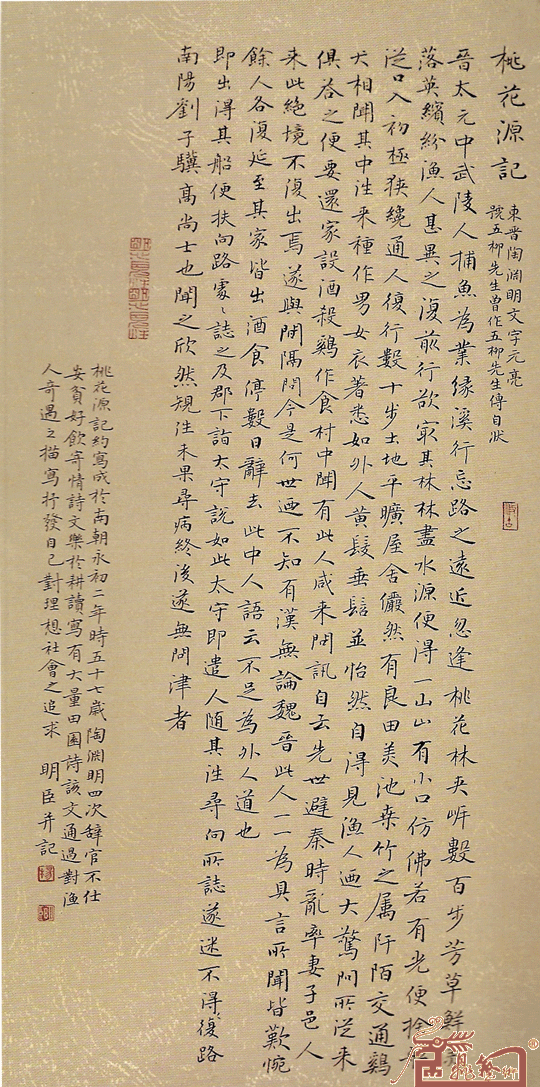 桃花源記
東晉陶淵明文字元亮
號五柳先生曾作五柳先生傳自狀
晉太元中武陵人捕魚為業緣溪行忘路之遠近忽逢桃花林夾岸數百步芳草鮮
落英繽紛漁人甚異之復前行欲窮其林林盡水源便得一山山有小口仿佛若有光便捨
從口入初極狹纔通人復行數十步土地平曠屋舍儼然有良田美池桑竹之属阡陌交通鷄
犬相聞其中往来種作男女衣著悉如外人黄髮垂髫並怡然自得見漁人迺大驚問所從来
俱荅之便要還家設酒殺鷄作食村中聞有此人咸来問訊自云先世避秦時亂率妻子邑人
来此絕境不復出焉遂與間隔問今是何世迺不知有漢無論魏晉此人一一為具言所聞皆歎惋
餘人各復延至其家皆出酒食停數日辭去此中人語云不足為外人道也
即出得其船便扶向路處〻誌之及郡下詣太守說如此太守即遣人随其往尋向所誌遂迷不得復路
南陽劉子驥高尚士也聞之欣然規往未果尋病終後遂無問津者
桃花源記約寫成於南朝永初二年時五十七歲陶淵明四次辭官不仕
安貧好飲寄情詩文樂於耕讀寫有大量田園詩該文通過對漁
人奇遇之描寫抒發自己對理想社會之追求 明臣并記